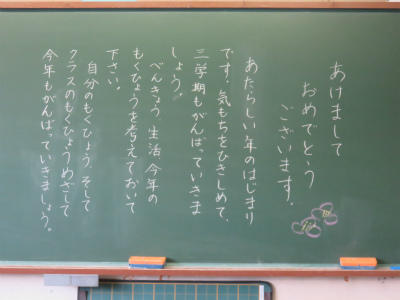 あけまして
おめでとう
ございます。
あたらしい年のはじまり
です。気もちをひきしめて、
三学期もがんばっていきま
しょう。
べんきょう、生活、今年の
もくひょうを考えておいて
下さい。
自分のもくひょう、そして
クラスのもくひょうめざして
今年もがんばっていきましょう。